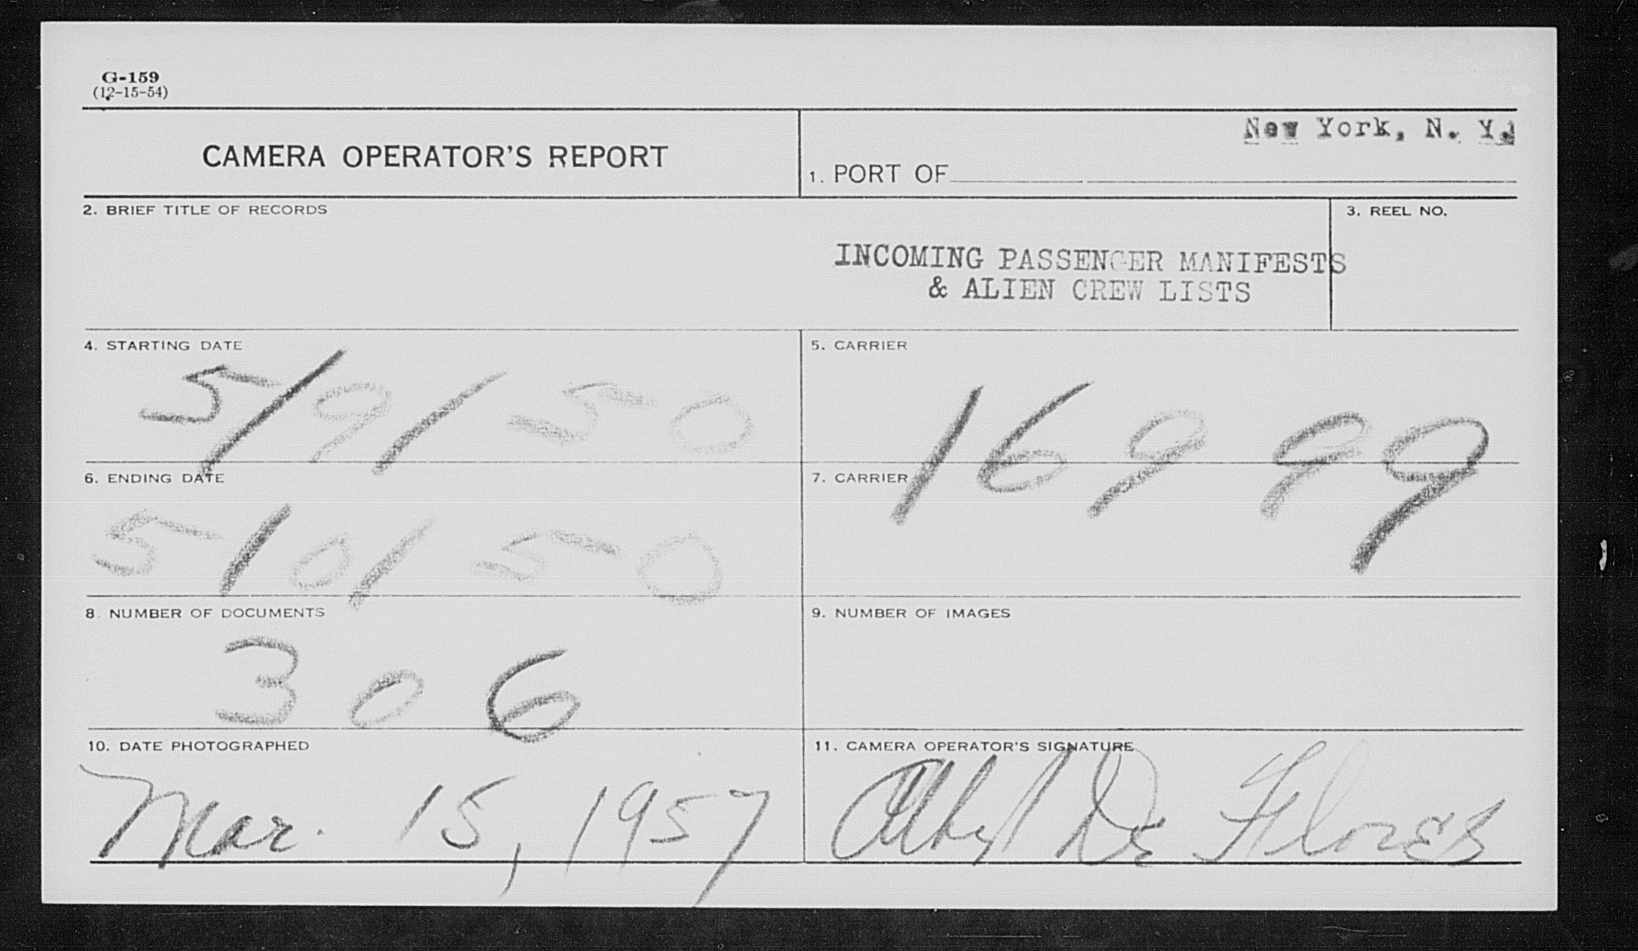 G-159
(12-15-54)
CAMERA OPERATOR'S REPORT
New York, N. Y.
1. PORT OF
2. BRIEF TITLE OF RECORDS
3. REEL NO.
INCOMING PASSENGER MANIFESTS
& ALIEN CREW LISTS
4. STARTING DATE
5/9/50
5. CARRIER
16999
6. ENDING DATE
5/0/50
7. CARRIER
8. NUMBER OF DOCUMENTS
306
9. NUMBER OF IMAGES
10. DATE PHOTOGRAPHED
Mar. 15, 1957
11. CAMERA OPERATOR'S SIGNATURE
De Flores